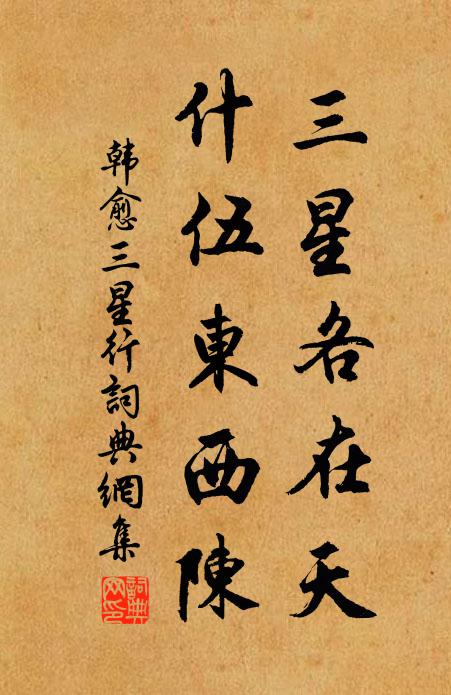 三星各在天
什伍東西陳
韓愈三星行詞典網集
詞典
网印